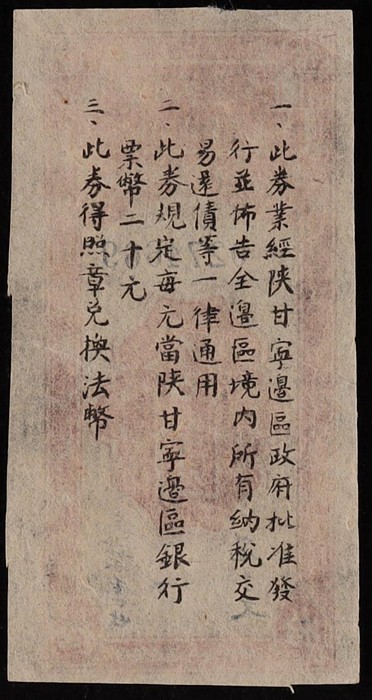 一、此券業經陝甘寧邊區政府批准發
行並佈告全邊區境內所有納稅交
易還債等一律通用
二、此券規定每元當陝甘寧邊區銀行
票幣二十元
三、此券得照章兌換法幣